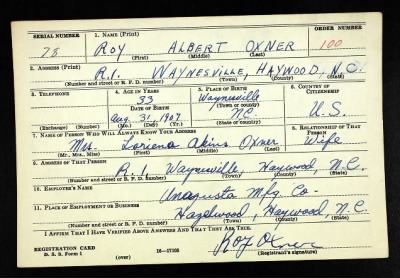 SERIAL NUMBER 1. NAME (Print) ORDER NUMBER
78 ROY ALBERT OXNER 100
(First) (Middle) (Last)
2. ADDRESS (Print)
R.1. WAYNESVILLE, HAYWOOD, N.C.
(Number and street or R. F. D. number) (Town) (County) (State)
3. TELEPHONE 4. AGE IN YEARS 5. PLACE OF BIRTH 6. COUNTRY OF CITIZENSHIP
33 Waynesville
DATE OF BIRTH (Town or county)
Aug. 31, 1907 N.C. U.S.
(Exchange) (Number) (Mo.) (Day) (Yr.) (State or country)
7. NAME OF PERSON WHO WILL ALWAYS KNOW YOUR ADDRESS 8. RELATIONSHIP OF THAT PERSON
Mrs. Loriena Akins Oxner Wife
(Mr., Mrs., Miss) (First) (Middle) (Last)
9. ADDRESS OF THAT PERSON
R.1, Waynesville, Haywood, N.C.
(Number and street or R. F. D. number) (Town) (County) (State)
10. EMPLOYER'S NAME
Unagusta Mfg. Co.
11. PLACE OF EMPLOYMENT OR BUSINESS
Hazelwood, Haywood, N.C.
(Number and street or R. F. D. number) (Town) (County) (State)
I AFFIRM THAT I HAVE VERIFIED ABOVE ANSWERS AND THAT THEY ARE TRUE.
Roy Oxner
REGISTRATION CARD
D. S. S. Form 1 (over) 16—17105 (Registrant's signature)